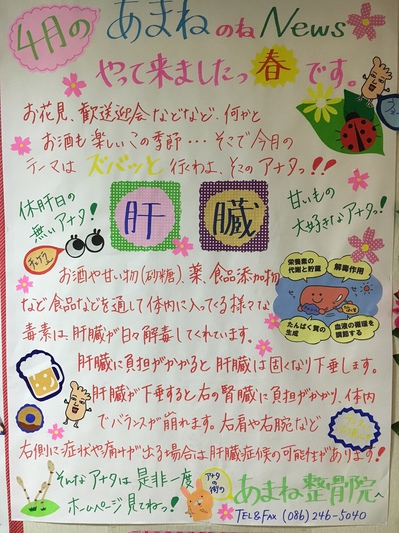 4月の あまねのね News
やって来ましたっ春です。
お花見、歓送迎会などなど、何かと
お酒も楽しいこの季節・・・そこで今月の
テーマは ズバッと 行くわよ、そこのアナタっ!!
休肝日の
無いアナタ!
肝臓
甘いもの
大好きなアナタっ!
お酒や甘い物(砂糖)、薬、食品添加物
など食品などを通して体内に入ってくる様々な
毒素は、肝臓が日々解毒してくれています。
栄養素の
代謝と貯蔵
解毒作用
たんぱく質の
生成
血液の循環を
調節する
肝臓に負担がかかると肝臓は固くなり下垂します。
肝臓が下垂すると右の腎臓に負担がかかり、体内
でバランスが崩れます。右肩や右腕など
右側に症状や痛みが出る場合は肝臓症候の可能性があります!
そんなアナタは是非一度
ホームページ見てねっ!
アナタの街の
あまね整骨院へ
TEL&FAX (086)246-5040